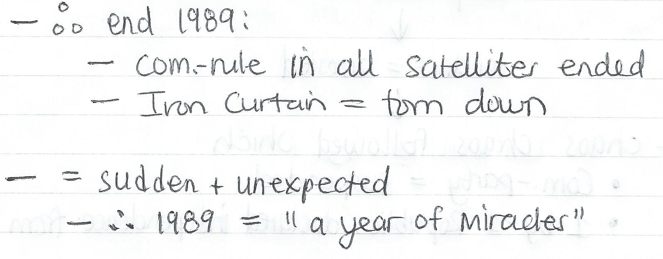 — ∴ end 1989:
— com.-rule in all satellites ended
— Iron Curtain = torn down
— = sudden + unexpected
— ∴ 1989 = "a year of miracles"